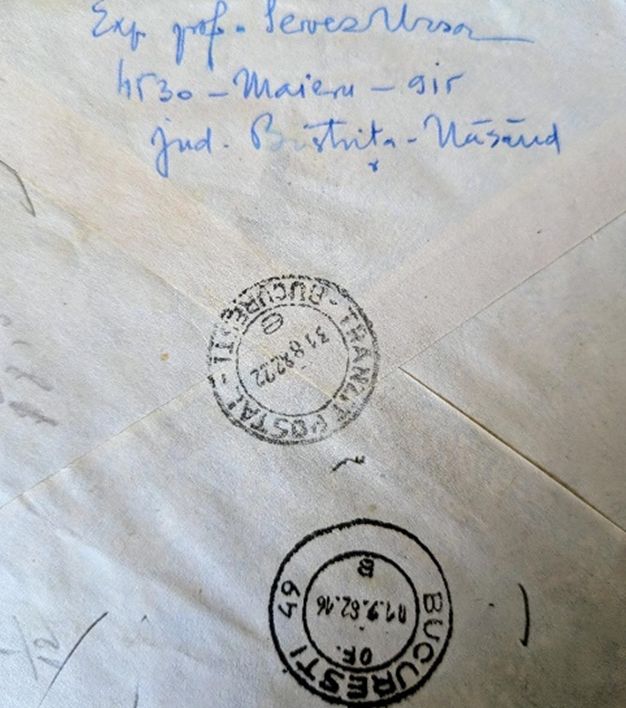 Exp. prof. Sever Ursa
4530 - Maieru - gir
jud. Bistrita - Năsăud
TRANZIT POSTAL - BUCURESTI -
31 8 82.22
BUCURESTI 49
OF.
01.9.82.16
a